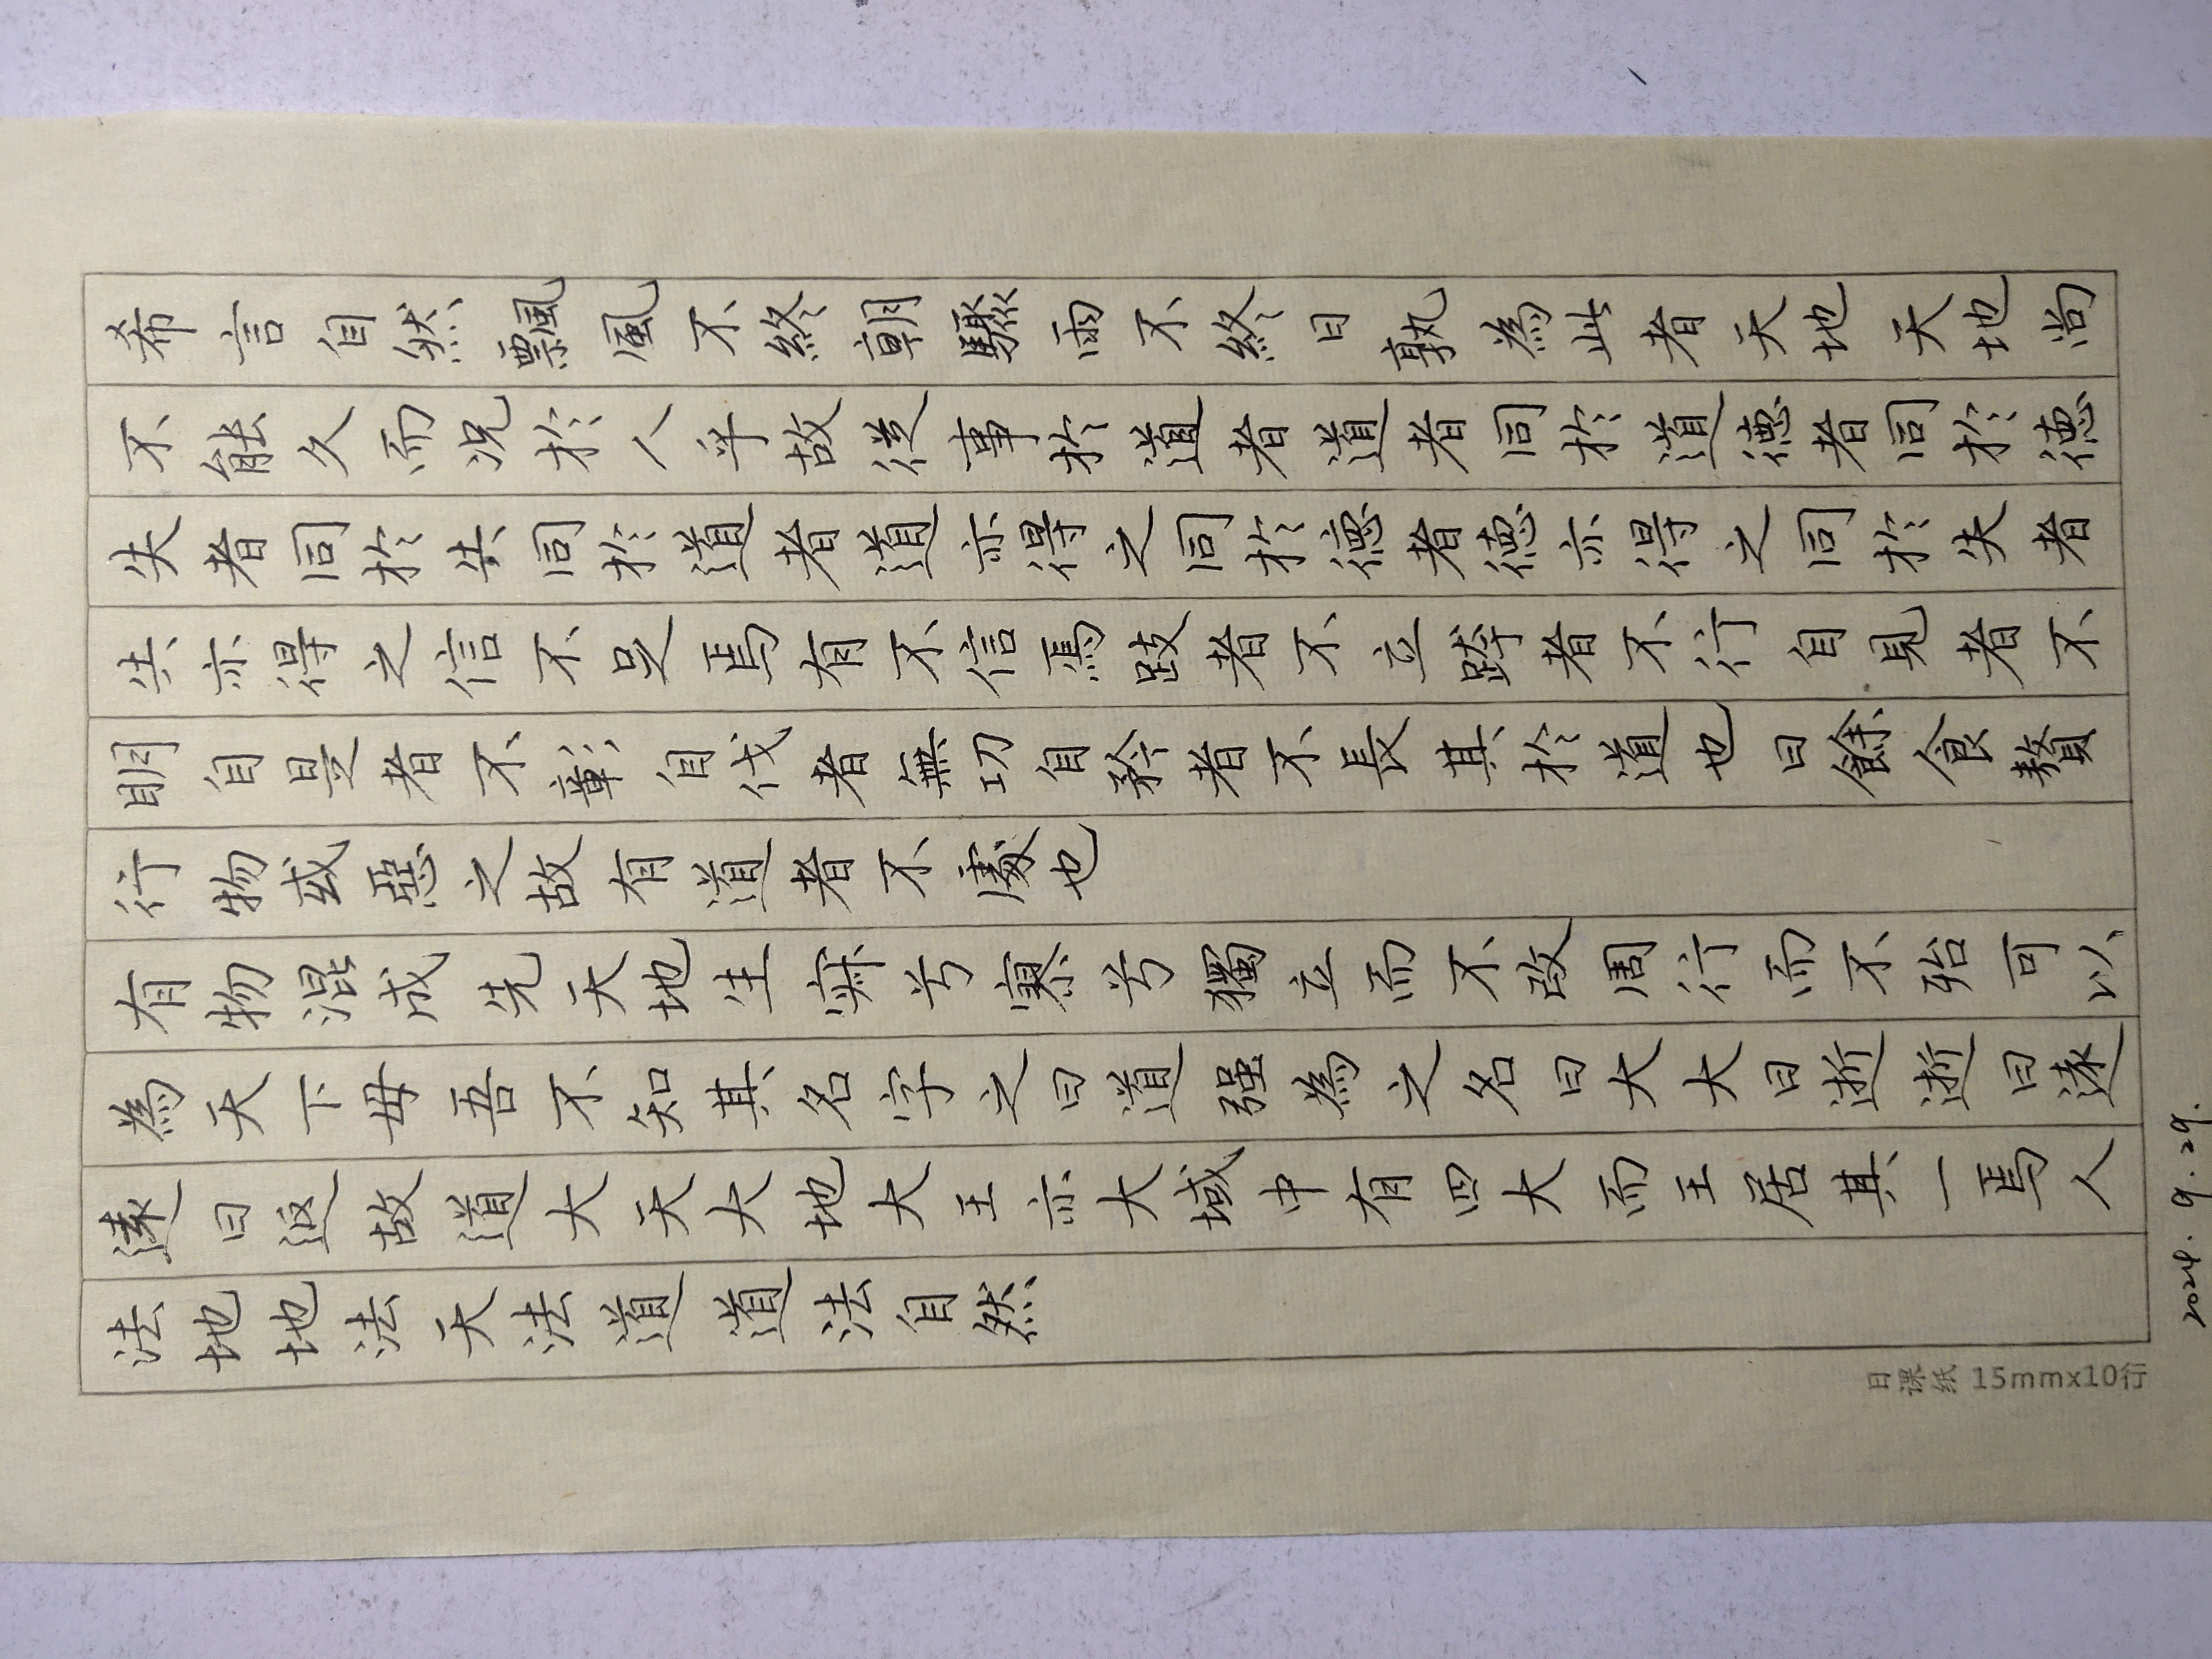 希言自然飄風不終朝驟雨不終日孰為此者天地天地尚
不能久而况於人乎故從事於道者道者同於道德者同於德
失者同於失同於道者道亦得之同於德者德亦得之同於失者
失亦得之信不足焉有不信焉跂者不立跨者不行自見者不
明自是者不彰自伐者無功自矜者不長其於道也曰餘食贅
行物或惡之故有道者不處也
有物混成先天地生寂兮寥兮獨立而不改周行而不殆可以
為天下母吾不知其名字之曰道强為之名曰大大曰逝逝曰遠
遠曰返故道大天大地大王亦大域中有四大而王居其一焉人
法地地法天天法道道法自然
日课纸 15mmx10行
2024.9.29.